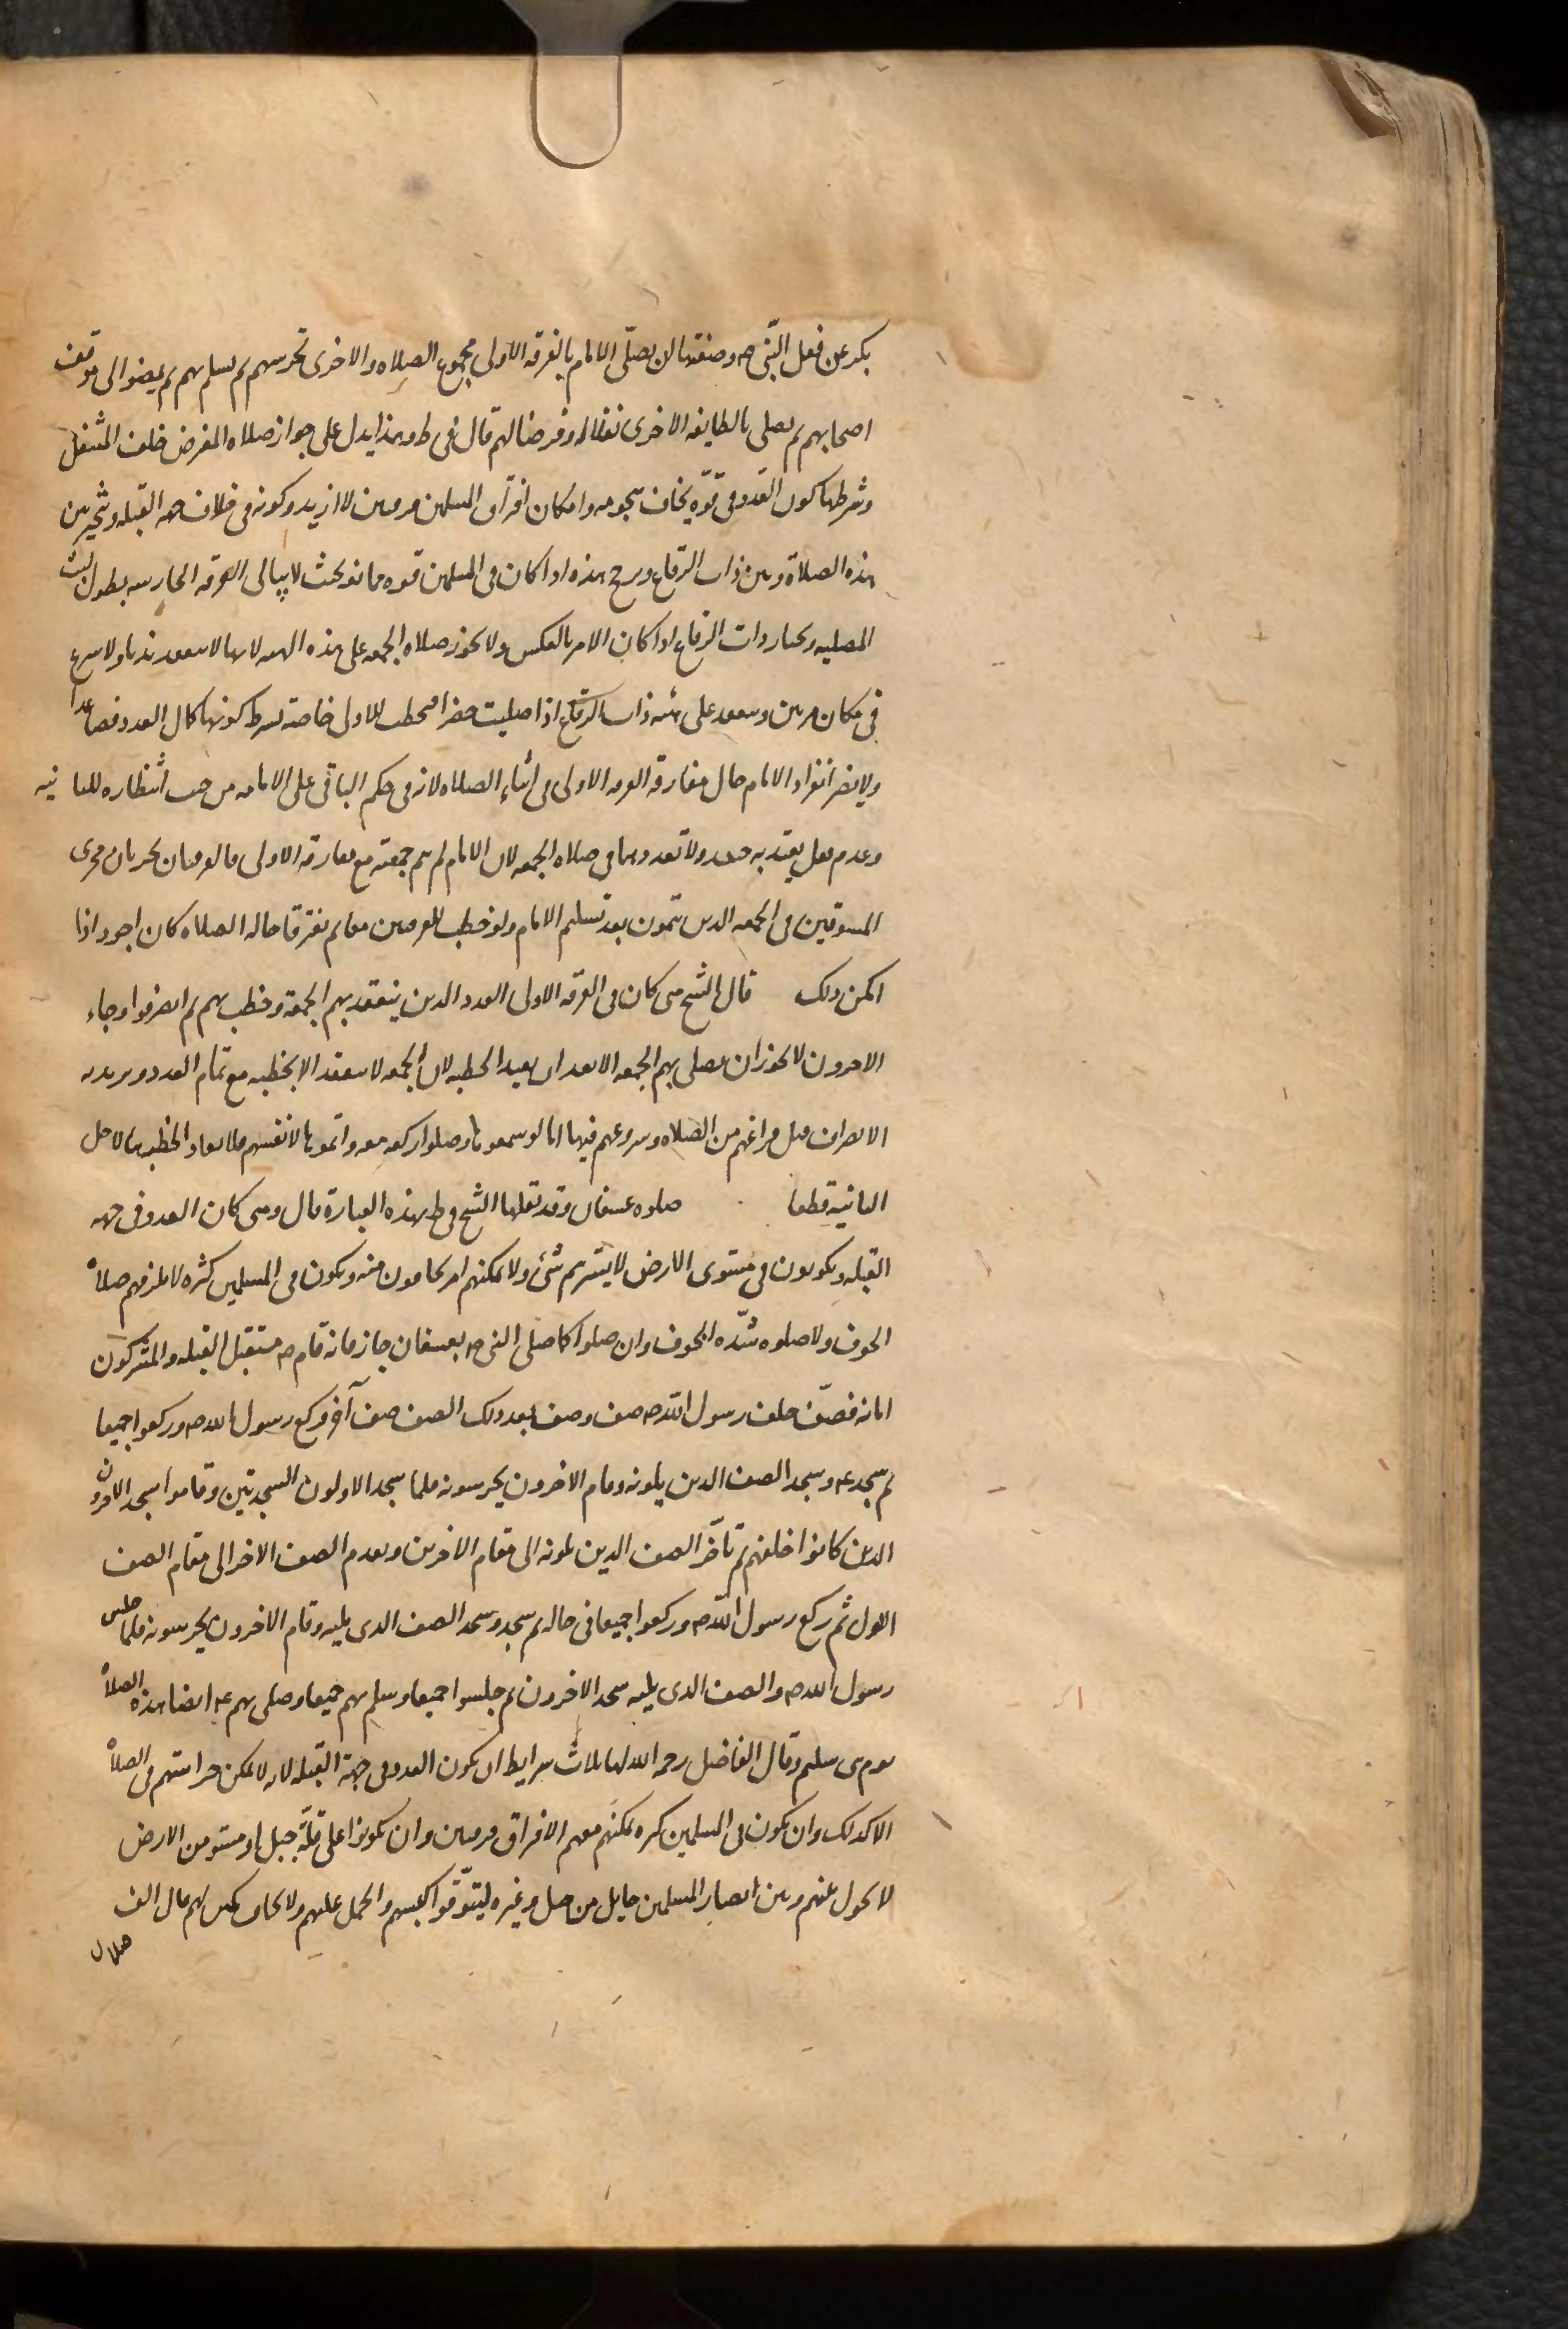 بكر عن فعل النبي ص وصفتها ان يصلي الامام بالفرقه الاولى مجموع الصلاه والاخرى تحرسهم ثم يسلم بهم ثم يمضوا الى موقف
اصحابهم ثم يصلي بالطايفه الاخرى نفلا له وفرضا لهم قال في ط وهذا يدل على جواز صلاه المفترض خلف المتنفل
وشرطها كون العدو في قوّه يخاف هجومه وامكان افتراق المسلمين فرقتين لا ازيد وكونه في خلاف جهه القبله ويتخير بين
هذه الصلاة وبين ذات الرقاع ويرجح هذه اذا كان في المسلمين قوه ممانعه بحيث لا يبالي الفرقه الحارسه بطول لبث
المصليه ويختار ذات الرقاع اذا كان الامر بالعكس ولا يجوز صلاه الجمعه على هذه الهيئه لانها لا تنعقد ندبا ولا تشرع
في مكان مرتين وتنعقد على هيئه ذات الرقاع اذا صليت حضرا فيخطب للاولى خاصة بشرط كونها كمال العدد فصاعدا
ولا يضر انفراد الامام حال مفارقه الفرقه الاولى في اثناء الصلاه لانه في حكم الباقي على الامامه من حيث انتظاره للثانيه
وعدم فعل يعتد به حينئذ ولا تعدد هنا في صلاه الجمعه لان الامام لم يتم جمعته مع مفارقه الاولى فالفرقتان تجريان مجرى
المسبوقين في الجمعه الذين يتمون بعد تسليم الامام ولو خطب للفرقتين معا ثم تفرقا حاله الصلاه كان اجود اذا
امكن ذلك قال الشيخ متى كان في الفرقه الاولى العدد الذين ينعقد بهم الجمعة وخطب بهم ثم انصرفوا وجاء
الاخرون لا يجوز ان يصلي بهم الجمعه الا بعد ان يعيد الخطبه لان الجمعه لا تنعقد الا بخطبه مع تمام العدد ويريد به
الانصراف قبل فراغهم من الصلاه وشروعهم فيها اما لو سمعوها وصلوا ركعه معه واتموها لانفسهم فلا تعاد الخطبه هنا لاجل
الثانية قطعا صلوه عسفان وقد نقلها الشيخ في ط بهذه العبارة قال ومتى كان العدو في جهه
القبله ويكونون في مستوى الارض لا يسترهم شئ ولا يمكنهم امر يخافون منه ويكون في المسلمين كثره لا يلزمهم صلاة
الخوف ولا صلوه شدّه الخوف وان صلوا كما صلى النبي ص بعسفان جاز فانه قام ص مستقبل القبله والمشركون
امامه فصفّ خلف رسول الله ص صف وصف بعد ذلك الصف صف آخر فركع رسول الله ص وركعوا جميعا
ثم سجد ع وسجد الصف الذين يلونه وقام الاخرون يحرسونه فلما سجد الاولون السجدتين وقاموا سجد الاخرون
الذين كانوا خلفهم ثم تأخر الصف الذين يلونه الى مقام الاخرين وتقدم الصف الاخر الى مقام الصف
الاول ثم ركع رسول الله ص وركعوا جميعا في حاله ثم سجد وسجد الصف الذي يليه وقام الاخرون يحرسونه فلما جلس
رسول الله ص والصف الذي يليه سجد الاخرون ثم جلسوا جميعا وسلم بهم جميعا وصلى بهم ع ايضا هذه الصلاة
يوم بني سليم وقال الفاضل رحمه الله لها ثلاث شرايط ان يكون العدو في جهة القبله لانه لا يمكن حراستهم في الصلاة
الا كذلك وان يكون في المسلمين كثره يمكنهم معهم الافتراق فرقتين وان يكونوا على قلّة جبل او مستو من الارض
لا يحول بينهم وبين ابصار المسلمين حايل من جبل وغيره ليتوقوا كبسهم والحمل عليهم ولا يخاف كمين لهم قال الف